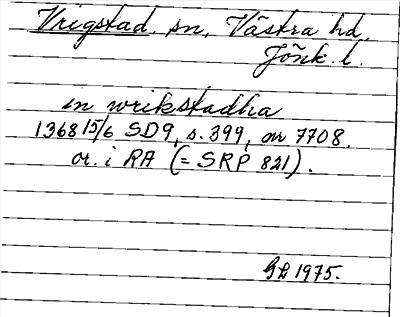 Vrigstad, sn, Västra hd,
Jönk. l.
in wrikstadha
1368 15/6 SD9, s. 399, nr 7708.
or. i RA (= SRP 821).
1975.